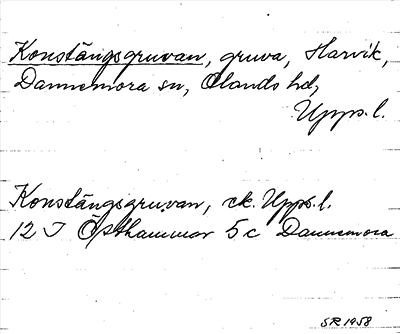 Konstängsgruvan, gruva, Harvik,
Dannemora sn, Olands hd,
Upps. l.
Konstängsgruvan, ek. Upps. l.
12 I Östhammar 5c Dannemora
SR 1958